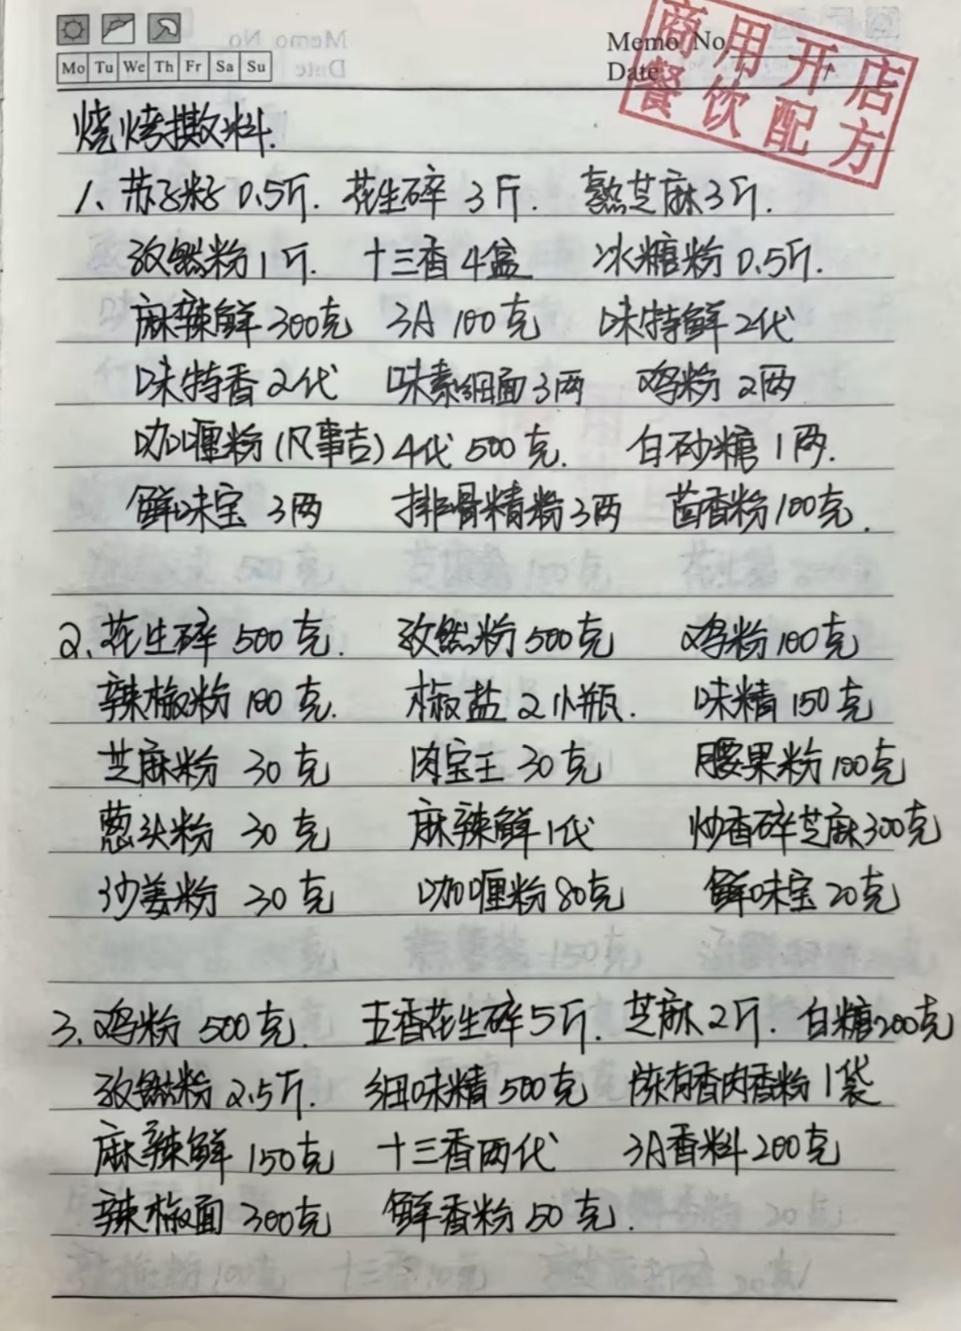 Memo No
Date
Mo Tu We Th Fr Sa Su
商用开店
餐饮配方
烧烤撒料.
1、苏子粉 0.5斤. 花生碎 3斤. 熟芝麻3斤.
孜然粉1斤. 十三香4盒 冰糖粉 0.5斤.
麻辣鲜 300克 3A 100克 味特鲜2代
味特香2代 味素细面3两 鸡粉 2两
咖喱粉(凡事吉)4代 500克. 白砂糖1两.
鲜味宝 3两 排骨精粉3两 茴香粉100克.
2、花生碎 500克. 孜然粉500克 鸡粉100克
辣椒粉 100克. 椒盐 2小瓶. 味精150克
芝麻粉 30克 肉宝王 30克 腰果粉100克
葱头粉 30克 麻辣鲜1代 炒香碎芝麻300克
沙姜粉 30克 咖喱粉80克 鲜味宝20克
3、鸡粉 500克. 五香花生碎5斤. 芝麻2斤. 白糖200克
孜然粉2.5斤. 细味精500克 陈有香肉香粉1袋
麻辣鲜150克 十三香两代 3A香料200克
辣椒面 300克 鲜香粉50克.